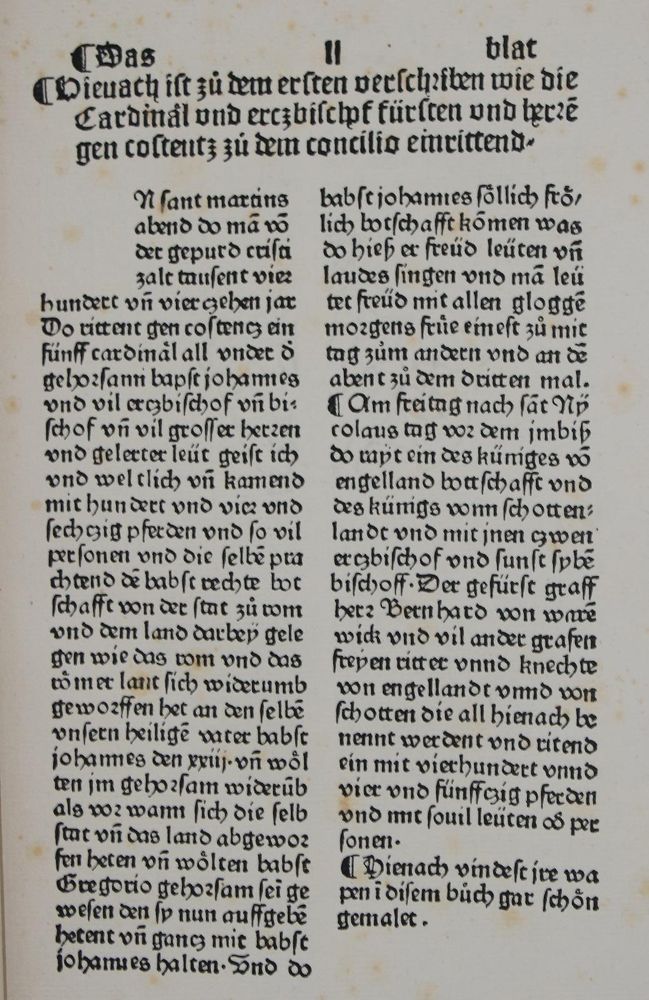 ¶Das II blat
¶Hienach ist zů dem ersten verschriben wie die
Cardinål vnd erczbischof fürsten vnd herrē
gen costentz zů dem concilio einrittend·
N sant martins
abend do mā vō
der gepurd cristi
zalt tausent vier
hundert vn̄ vierczehen jar
Do rittent gen costencz ein
fünff cardinål all vnder d̕
gehorsam bapst johannes
vnd vil erczbischof vn̄ bi⸗
schof vn̄ vil grosser herren
vnd gelerter leüt geist lich
vnd weltlich vn̄ kamend
mit hundert vnd vier vnd
sechczig pferden vnd so vil
personen vnd die selbē pra
chtend dē babst rechte bot
schafft von der stat zů rom
vnd dem land darbey gele
gen wie das rom vnd das
rőmer lant sich widerumb
geworffen het an den selbē
vnsern heiligē vater babst
johannes den xxiij·vn̄ wől
ten jm gehorsam widerūb
als vor wann sich die selb
stat vn̄ das land abgewor
fen heten vn̄ wőlten babst
Gregorio gehorsam sei ge
wesen den sy nun auffgebē
hetent vn̄ gancz mit babst
johannes halten·Vnd do
babst johannes sőllich frő/
lich botschafft kőmen was
do hieß er freüd leüten vn̄
laudes singen vnd mā leü
tet freüd mit allen gloggē
morgens frůe einest zů mit
tag zům andern vnd an dē
abent zů dem dritten mal.
¶Am freitag nach sāt Ny
colaus tag vor dem jmbiß
do rayt ein des küniges vō
engelland bottschafft vnd
des künigs vonn schotten⸗
landt vnd mit jnen czwen
erczbischof vnd sunst sybē
bischoff·Der gefürst graff
herr Bernhard von warē
wick vnd vil ander grafen
freyen ritter vnnd knechte
von engellandt vnnd von
schotten die all hienach be
nennt werdent vnd ritend
ein mit vierhundert vnnd
vier vnd fünffczig pferden
vnd mit souil leüten od̕ per
sonen·
¶Hienach vindest jre wa
pen ī disem bůch gar schőn
gemalet.